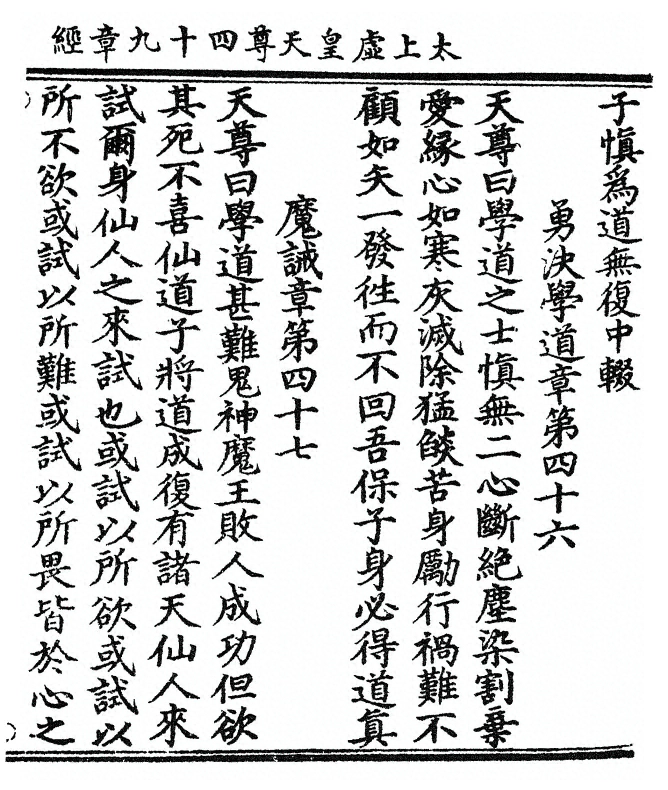 太上虛皇天尊四十九章經
子慎爲道無復中輟
勇決學道章第四十六
天尊曰學道之士慎無二心斷絕塵染割棄
愛緣心如寒灰滅除猛燄苦身勵行禍難不
顧如矢一發徃而不回吾保子身必得道眞
魔誡章第四十七
天尊曰學道甚難鬼神魔王敗人成功但欲
其死不喜仙道子將道成復有諸天仙人來
試爾身仙人之來試也或試以所欲或試以
所不欲或試以所難或試以所畏皆於心之